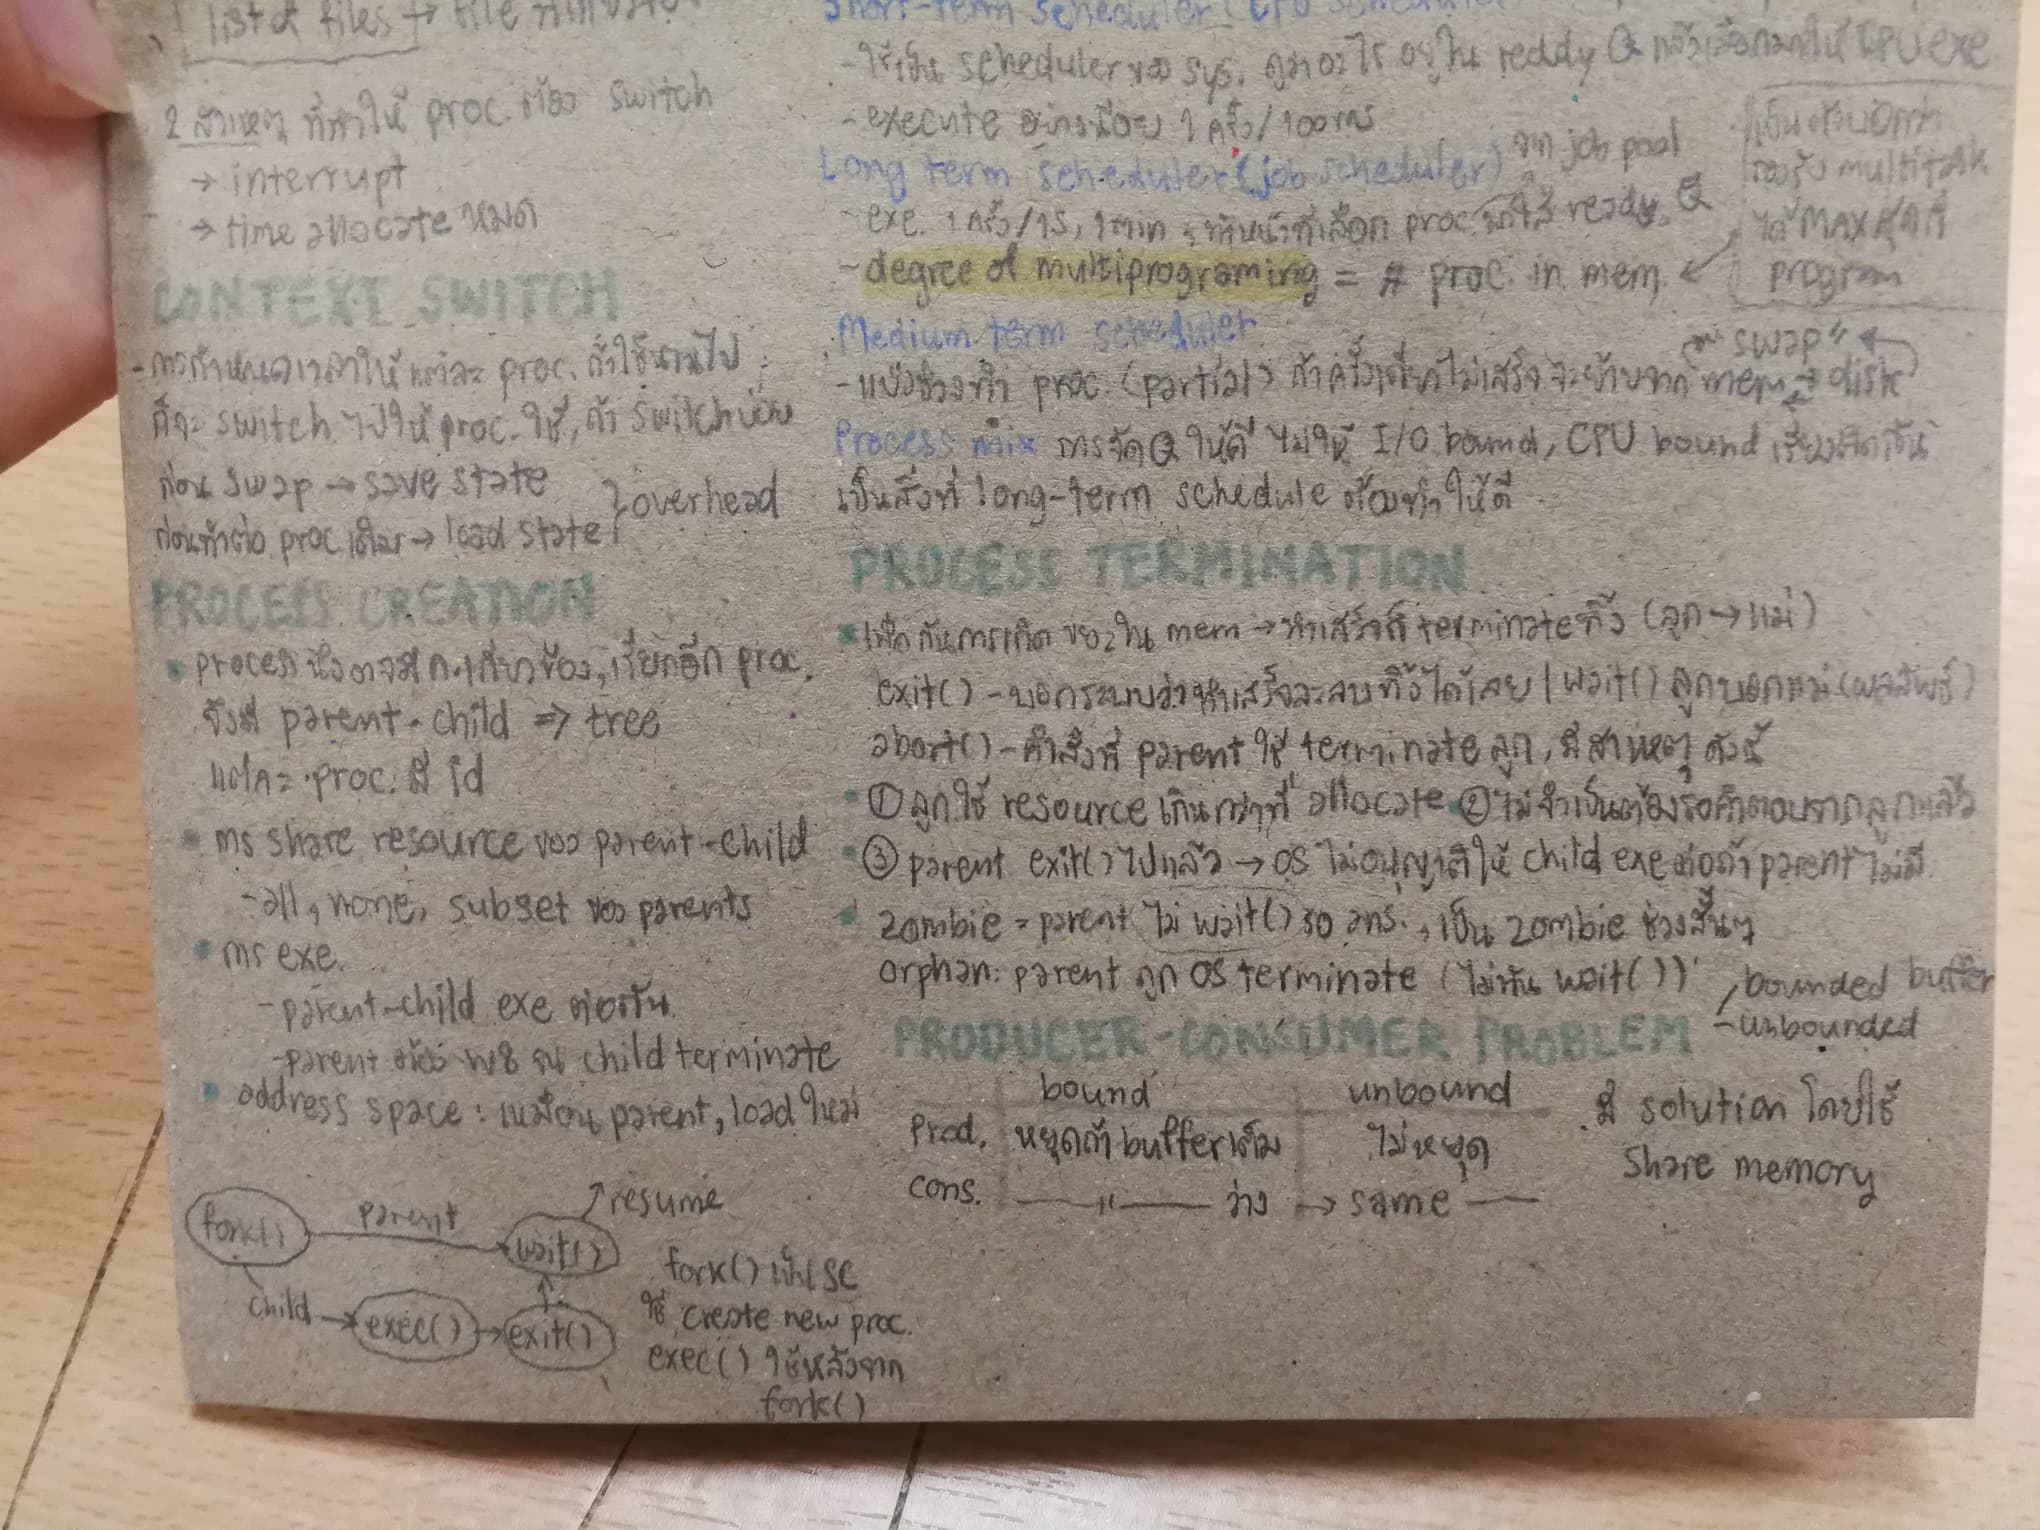 list of files → file
2 สาเหตุ ที่ทำให้ proc. ต้อง switch
→ interrupt
→ time allocate หมด
CONTEXT SWITCH
- การกำหนดเวลาให้แต่ละ proc. ถ้าใช้นานไป
ก็จะ switch ไปให้ proc. ใช้, ถ้า switch บ่อย
ก่อน swap → save state
ก่อนทำต่อ proc เดิม → load state } overhead
PROCESS CREATION
process นึงอาจมีก.เกี่ยวข้อง, เรียกอีก proc.
จึงมี parent-child ⇒ tree
แต่ละ proc. มี id
การ share resource ของ parent-child
- all, none, subset ของ parents
การ exe.
- parent-child exe ต่อกัน
- parent ต้อง wait จน child terminate
address space : เหมือน parent, load ใหม่
fork() parent → wait() resume
child → exec() → exit()
fork() เป็น SC
ใช้ create new proc.
exec() ใช้หลังจาก
fork()
Short-term scheduler (CPU scheduler)
- ใช้เป็น scheduler ของ sys. ดูว่าอะไร อยู่ใน reddy Q แล้วเลือกมาให้ CPU exe
- execute อย่างน้อย 1 ครั้ง/100ms
Long term scheduler (job scheduler) จาก job pool
- exe. 1 ครั้ง/1s, 1min , ทำหน้าที่เลือก proc. มาใส่ ready Q
- degree of multiprograming = # proc. in mem.
เป็นตัวบอกว่า
รองรับ multitask
ได้ MAX สุดกี่
program
Medium term scheduler
"swap"
- แบ่งช่วงทำ proc. (partial) ถ้าครั้งเดียวไม่เสร็จ จะย้ายจาก mem → disk
Process mix การจัด Q ให้ดี ไม่ให้ I/O bound, CPU bound เรียงติดกัน
เป็นสิ่งที่ long-term schedule ต้องทำให้ดี
PROCESS TERMINATION
เพื่อกันการเกิด ขยะใน mem → ทำเสร็จก็ terminate ทิ้ง (ลูก → แม่)
exit() - บอกระบบว่าทำเสร็จละลบทิ้งได้เลย | wait() ลูกบอกแม่ (ผลลัพธ์)
abort() - คำสั่งที่ parent ใช้ terminate ลูก, มีสาเหตุ ดังนี้
① ลูกใช้ resource เกินกว่าที่ allocate ② ไม่จำเป็นต้องรอคำตอบจากลูกแล้ว
③ parent exit() ไปแล้ว → OS ไม่อนุญาติให้ child exe ต่อถ้า parent ไม่มี
zombie = parent ไม่ wait() รอ ลทธ., เป็น zombie ช่วงสั้นๆ
orphan: parent ถูก OS terminate (ไม่ทัน wait())
PRODUCER-CONSUMER PROBLEM
bounded buffer
- unbounded
bound unbound
Prod. หยุดถ้า buffer เต็ม ไม่หยุด
cons. —— " —— ว่าง → same ——
มี solution โดยใช้
share memory